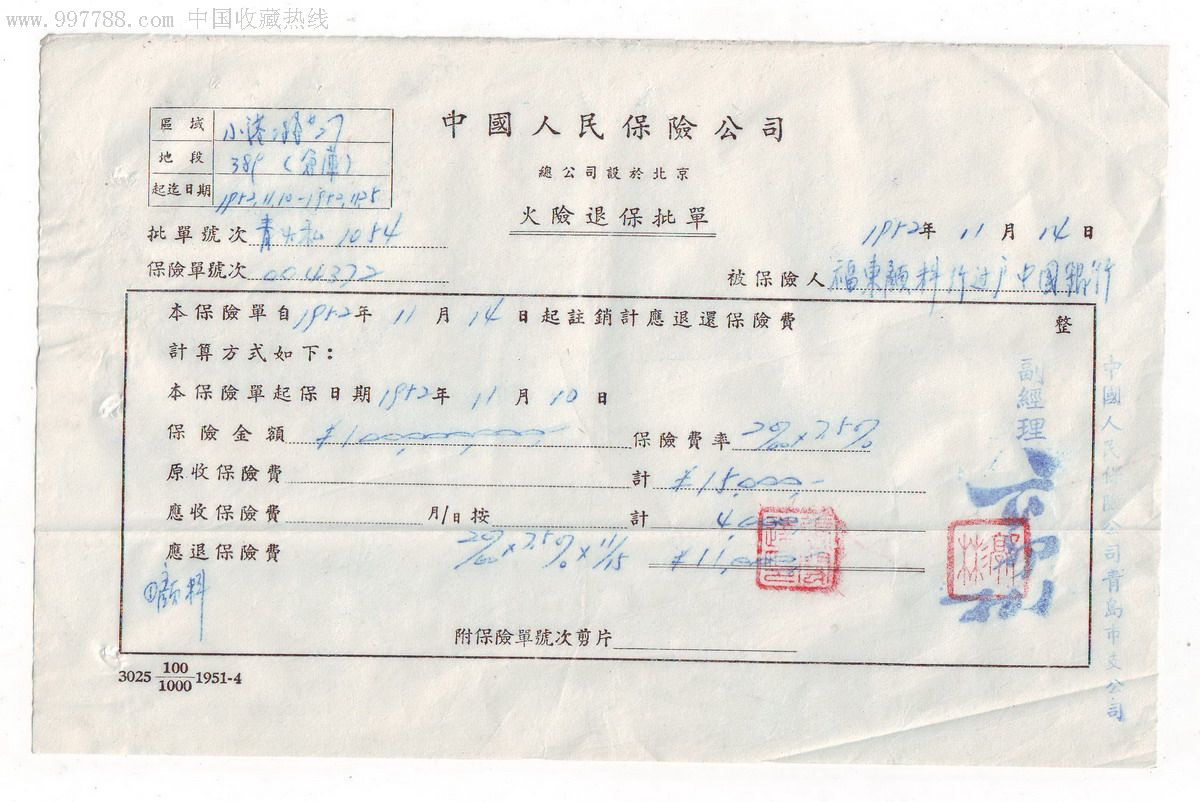 www.997788.com 中国收藏热线
中國人民保險公司
總公司設於北京
火險退保批單
區域 小港二路27
地段 389 (倉庫)
起迄日期 1952.11.10-1952.11.25
批單號次 青火私 1054
保險單號次 004372
1952年 11 月 14 日
被保險人 福東顏料行过户中國銀行
本保險單自 1952年 11 月 14 日起註銷計應退還保險費 整
計算方式如下:
本保險單起保日期 1952年 11 月 10 日
保險金額 ¥100,000,000 保險費率 2‰×7.5%
原收保險費 計 ¥15,000.-
應收保險費 月/日按 計 4,000
應退保險費 2‰×7.5%×11/15 ¥11,000
①顏料
附保險單號次剪片
3025 100/1000 1951-4
副經理
中國人民保險公司青島市支公司